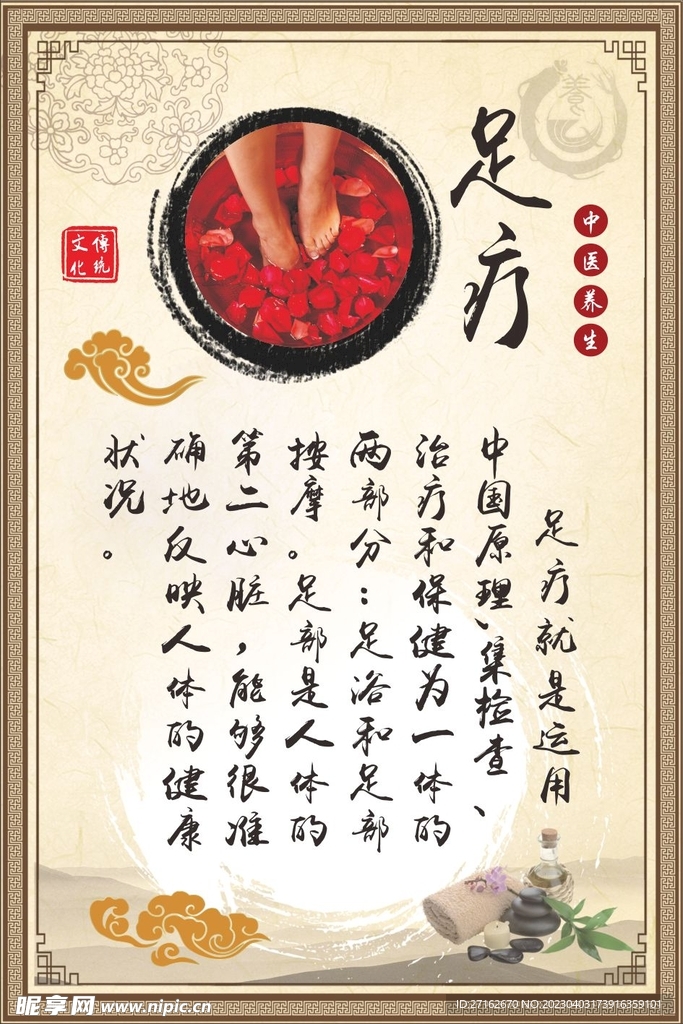 足疗
中医养生
傳統
文化
養
足疗就是运用
中国原理、集检查、
治疗和保健为一体的
两部分：足浴和足部
按摩。足部是人体的
第二心脏，能够很准
确地反映人体的健康
状况。
昵享网 www.nipic.cn
ID:27162670 NO:20230403173916359101